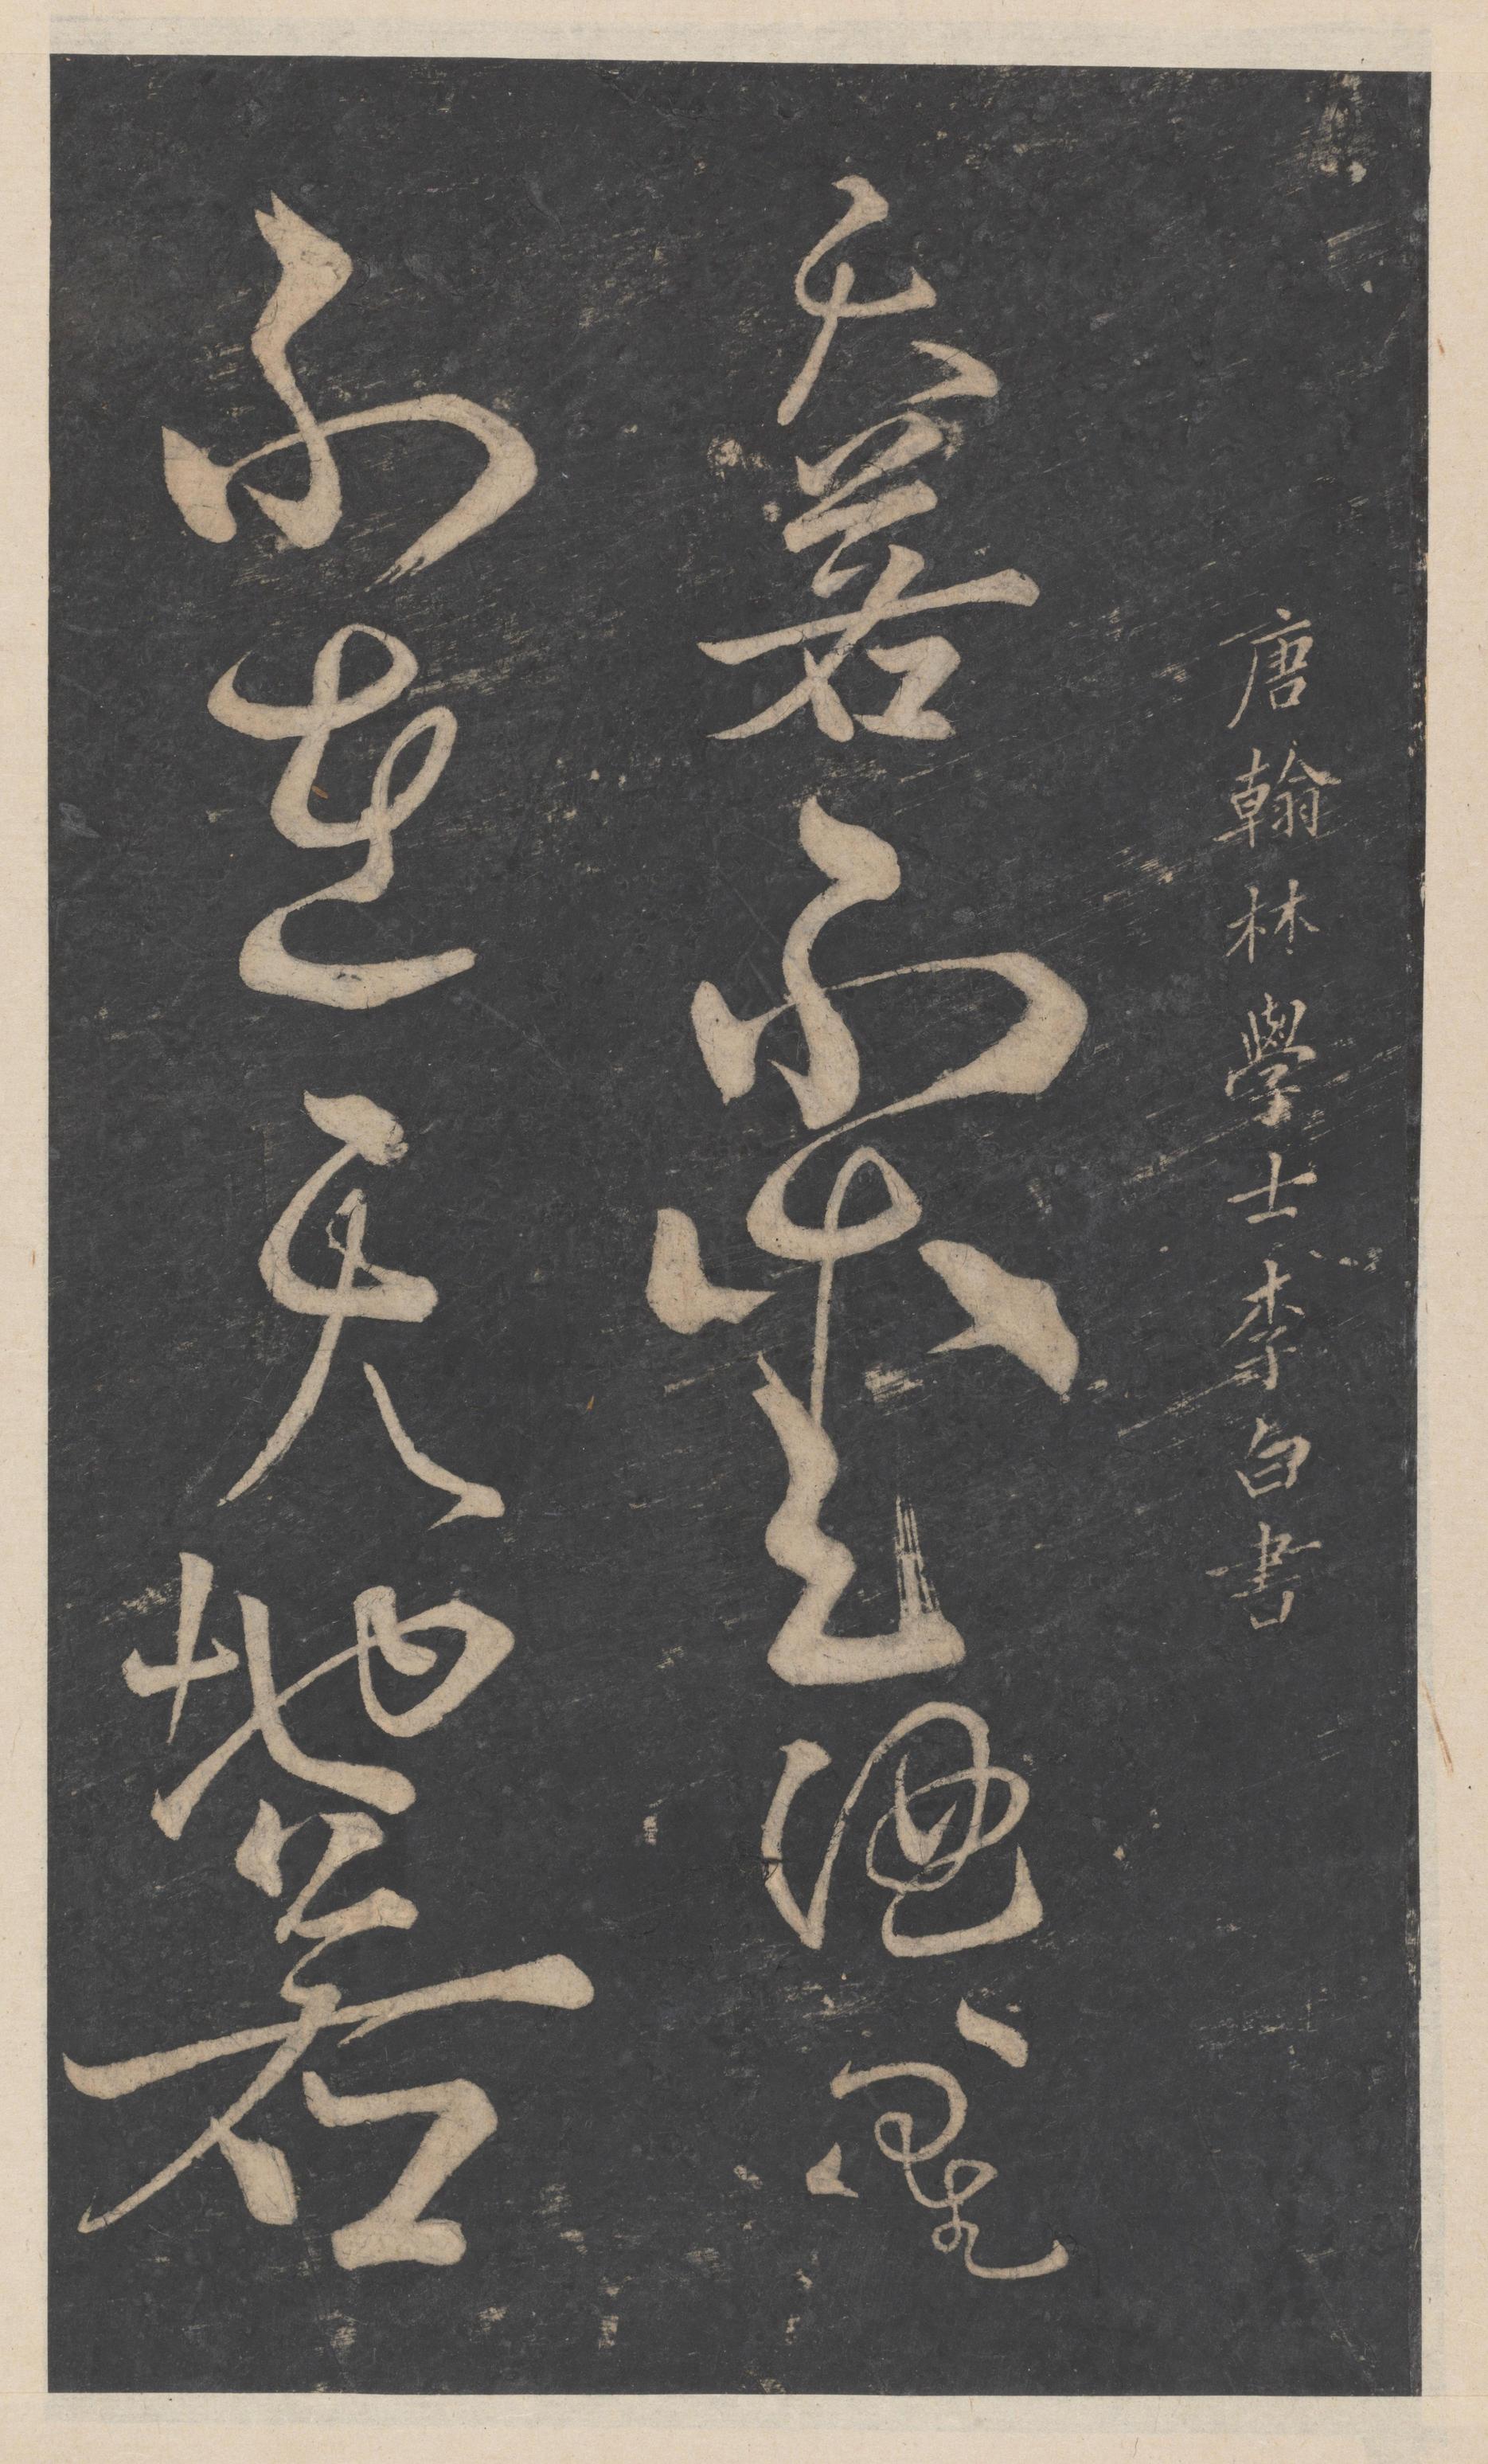 唐翰林學士李白書
天若不愛酒酒星
不在天地若